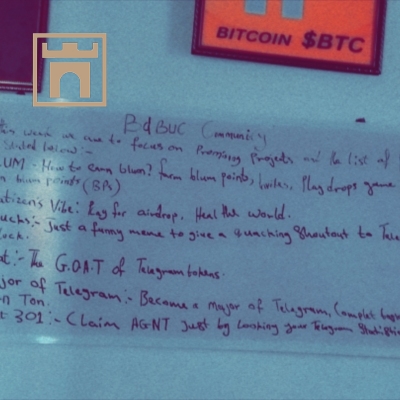 BITCOIN $BTC
BdBUC Community
week we are to focus on Promising Projects and the list of
Stated below:-
LUM - How to earn blum? farm blum points, invites, Play drops game
blum points (BPs)
Vibe: Rug for airdrop, Heal the world.
Just a funny meme to give a quacking shoutout to Tele
at:- The G.O.A.T of Telegram tokens.
jor of Telegram:- Become a major of Telegram, Complet
on Ton.
t 301:- Claim AGNT Just by Looking your Telegram